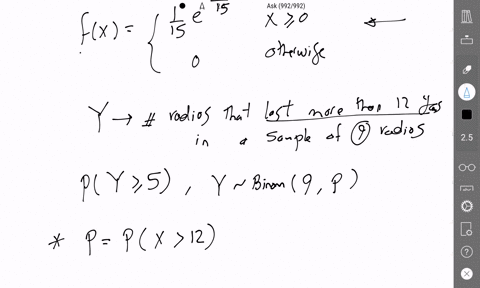 Ask (992/992)
f(x) = { 1/15 e^ 15 x ≥ 0
0 otherwise
Y → # radios that last more than 12 years
in a sample of 9 radios
P(Y ≥ 5) , Y ~ Binom(9, P)
* P = P(X > 12)
2.5